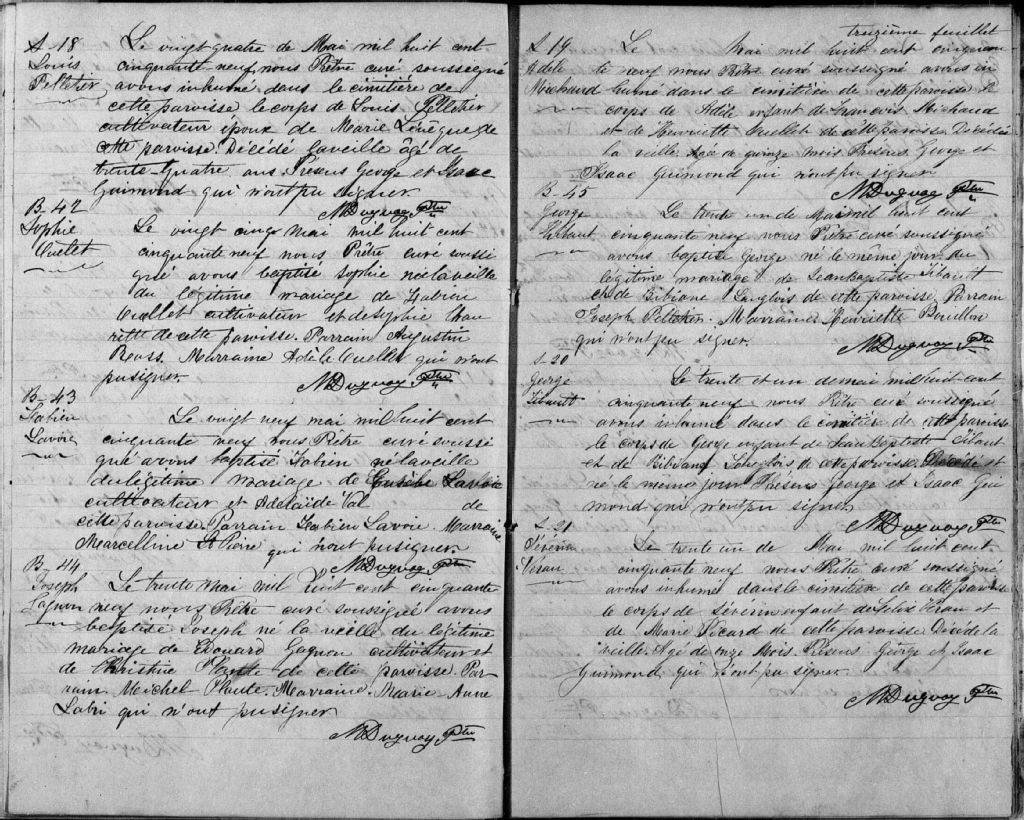 S-18
Louis
Pelletier
Le vingt quatre de Mai mil huit cent
cinquante neuf nous Prêtre curé soussigné
avons inhumé dans le cimitière de
cette paroisse le corps de Louis Pelletier
cultivateur époux de Marie Levêque de
cette paroisse. Décédé la veille âgé de
trente-quatre ans Présens George et Isaac
Guimond qui n'ont pu signer.
NDuguay Ptre
B-42
Sophie
Ouelet
Le vingt cinq Mai mil huit cent
cinquante neuf nous Prêtre curé soussi
gné avons baptisé Sophie née la veille
du légitime mariage de Fabien
Ouellet cultivateur et de Sophie
rette de cette paroisse. Parrain Augustin
Ross. Marraine Adèle Ouellet qui n'ont
pu signer.
NDuguay Ptre
B-43
Fabien
Lavoie
Le vingt neuf mai mil huit cent
cinquante neuf nous Prêtre curé soussi
gné avons baptisé Fabien né la veille
du légitime mariage de Eusèbe Lavoie
cultivateur et Adelaïde Val de
cette paroisse Parrain Fabien Lavoie. Marraine
Marcelline St Pierre qui n'ont pu signer.
NDuguay Ptre
B-44
Joseph
Gagnon
Le trente Mai mil huit cent cinquante
neuf nous Prêtre curé soussigné avons
baptisé Joseph né la veille du légitime
mariage de Edouard Gagnon cultivateur et
de Christine Plante de cette paroisse. Par
rain Meichel Plante. Marraine. Marie Anne
Labri qui n'ont pu signer
NDuguay Ptre
treizième feuillet
S-19
Adèle
Michaud
Le Mai mil huit cent cinquan
te neuf nous Prêtre curé soussigné avons in
humé dans le cimitière de cette paroisse le
corps de Adèle enfant de François Michaud
et de Henriette Ouellet de cette paroisse Décédée
la veille. Agée de quinze mois Présens George et
Isaac Guimond qui n'ont pu signer
NDuguay Ptre
B-45
George
Tibaut
Le trente un de Mai mil huit cent
cinquante neuf nous Prêtre curé soussigné
avons baptisé George né le même jour du
légitime mariage de Jean baptiste Tibautt
et de Bibiane Langlois de cette paroisse. Parrain
Joseph Peltier. Marraine Henriette Bouillon
qui n'ont pu signer.
NDuguay Ptre
S-20
George
Tibautt
Le trente et un de mai mil huit cent
cinquante neuf nous Prêtre curé soussigné
avons inhumé dans le cimitière de cette paroisse
le corps de George enfant de Jean Baptiste Tibaut
et de Bibiane Langlois de cette paroisse. Décédé et
né le même jour Présens George et Isaac Gui
mond qui n'ont pu signer.
NDuguay Ptre
S-21
Sévérin
Veran
Le trente un de Mai mil huit cent
cinquante neuf nous Prêtre curé soussigné
avons inhumé dans le cimitière de cette paroisse
le corps de Sévérin enfant de Veran et
de Marie Picard de cette paroisse Décédé la
veille Agé de onze Mois Présens George et Isaac
Guimond qui n'ont pu signer.
NDuguay Ptre